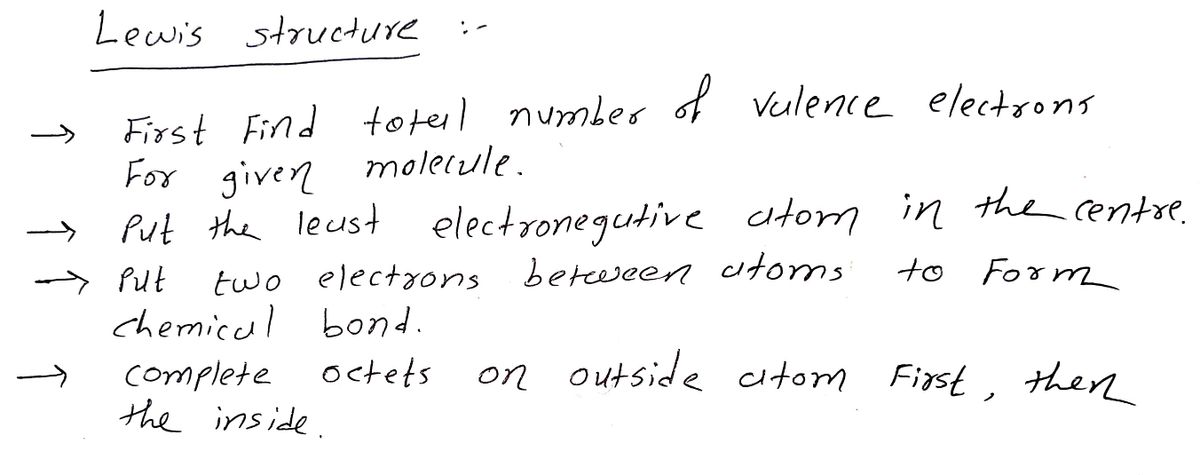 Lewis structure :-
→ First Find total number of valence electrons
For given molecule.
→ Put the least electronegative atom in the centre.
→ Put two electrons between atoms to Form
chemical bond.
→ complete octets on outside atom First, then
the inside.